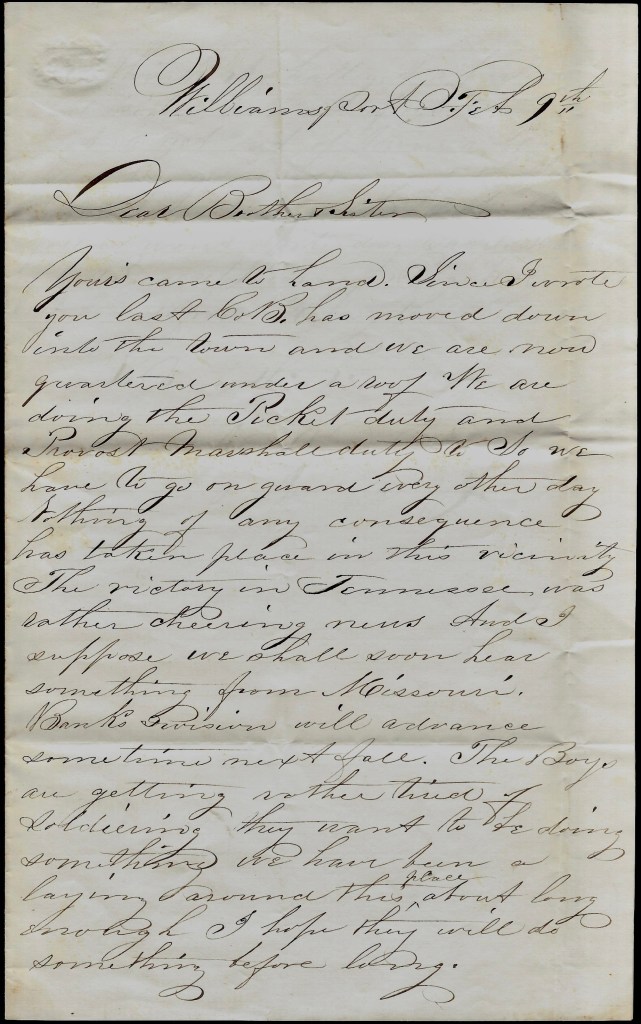 Williamsport Feb 9th
Dear Brother & Sister
Yours came to hand. Since I wrote
you last Co B. has moved down
into the town and we are now
quartered under a roof We are
doing the Picket duty and
Provost Marshall duty to So we
have to go on guard every other day
Nothing of any consequence
has taken place in this vicinity
The victory in Tennessee was
rather cheering news And I
suppose we shall soon hear
something from Missouri.
Banks Division will advance
sometime next fall. The Boys
are getting rather tired of
soldiering they want to be doing
something we have been a
laying around this place about long
enough I hope they will do
something before long.